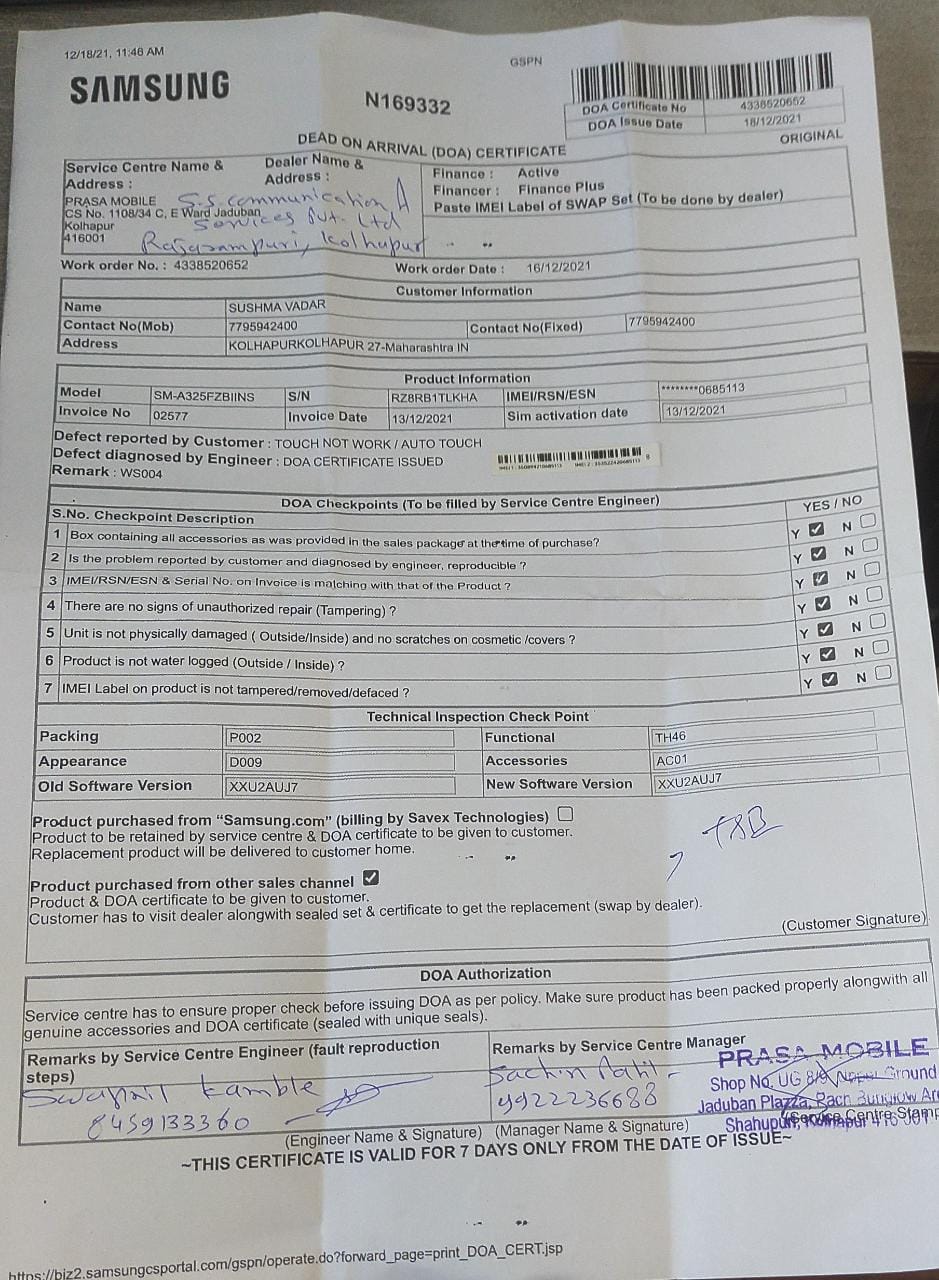 12/18/21, 11:46 AM
GSPN
SAMSUNG
N169332
DOA Certificate No 4338520652
DOA Issue Date 18/12/2021
ORIGINAL
DEAD ON ARRIVAL (DOA) CERTIFICATE
Service Centre Name & Address :
PRASA MOBILE
CS No. 1108/34 C, E Ward Jaduban
Kolhapur
416001
Dealer Name & Address :
S.S. communication
Services Pvt. Ltd
Rajarampuri, Kolhapur
Finance : Active
Financer : Finance Plus
Paste IMEI Label of SWAP Set (To be done by dealer)
Work order No. : 4338520652 Work order Date : 16/12/2021
Customer Information
Name SUSHMA VADAR
Contact No(Mob) 7795942400 Contact No(Fixed) 7795942400
Address KOLHAPURKOLHAPUR 27-Maharashtra IN
Product Information
Model SM-A325FZBIINS S/N RZ8RB1TLKHA IMEI/RSN/ESN ********0685113
Invoice No 02577 Invoice Date 13/12/2021 Sim activation date 13/12/2021
Defect reported by Customer : TOUCH NOT WORK / AUTO TOUCH
Defect diagnosed by Engineer : DOA CERTIFICATE ISSUED
Remark : WS004
DOA Checkpoints (To be filled by Service Centre Engineer)
S.No. Checkpoint Description YES / NO
1 Box containing all accessories as was provided in the sales package at the time of purchase? Y N
2 Is the problem reported by customer and diagnosed by engineer, reproducible ? Y N
3 IMEI/RSN/ESN & Serial No. on Invoice is matching with that of the Product ? Y N
4 There are no signs of unauthorized repair (Tampering) ? Y N
5 Unit is not physically damaged ( Outside/Inside) and no scratches on cosmetic /covers ? Y N
6 Product is not water logged (Outside / Inside) ? Y N
7 IMEI Label on product is not tampered/removed/defaced ? Y N
Technical Inspection Check Point
Packing P002 Functional TH46
Appearance D009 Accessories AC01
Old Software Version XXU2AUJ7 New Software Version XXU2AUJ7
Product purchased from “Samsung.com” (billing by Savex Technologies)
Product to be retained by service centre & DOA certificate to be given to customer.
Replacement product will be delivered to customer home.
Product purchased from other sales channel
Product & DOA certificate to be given to customer.
Customer has to visit dealer alongwith sealed set & certificate to get the replacement (swap by dealer).
(Customer Signature)
DOA Authorization
Service centre has to ensure proper check before issuing DOA as per policy. Make sure product has been packed properly alongwith all
genuine accessories and DOA certificate (sealed with unique seals).
Remarks by Service Centre Engineer (fault reproduction
steps)
Swapnil Kamble
8459133360
(Engineer Name & Signature)
Remarks by Service Centre Manager
Sachin Patil
9922236688
(Manager Name & Signature)
PRASA MOBILE
Shop No. UG 8/9 Ground
Jaduban Plazza,
Shahupuri, Kolhapur 416 001
(Service Centre Stamp
~THIS CERTIFICATE IS VALID FOR 7 DAYS ONLY FROM THE DATE OF ISSUE~
https://biz2.samsungcsportal.com/gspn/operate.do?forward_page=print_DOA_CERT.jsp